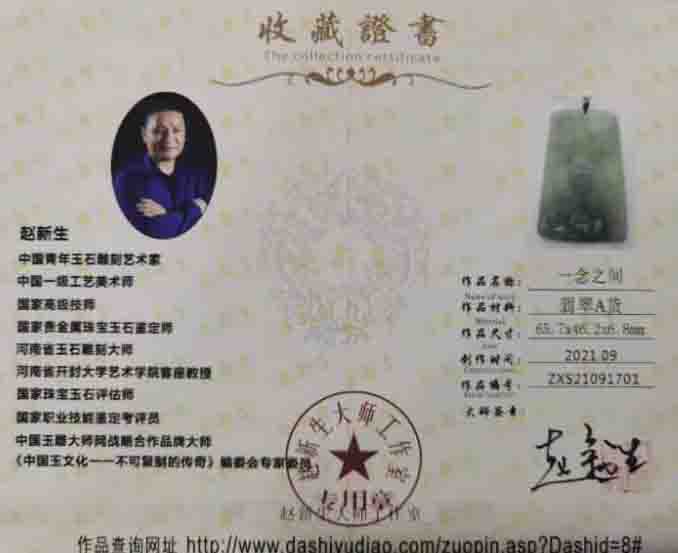 收藏證書
The collection certificate
赵新生
中国青年玉石雕刻艺术家
中国一级工艺美术师
国家高级技师
国家贵金属珠宝玉石鉴定师
河南省玉石雕刻大师
河南省开封大学艺术学院客座教授
国家珠宝玉石评估师
国家职业技能鉴定考评员
中国玉雕大师网战略合作品牌大师
《中国玉文化——不可复制的传奇》编委会专家委员
作品名称: 一念之间
Name of work
作品材料: 翡翠A货
Material
作品尺寸: 65.7x46.2x6.8mm
Size
制作时间: 2021.09
作品编号: ZXS21091701
大师签章:
赵新生
赵新生大师工作室
专用章
赵新生大师工作室
作品查询网址 http://www.dashiyudiao.com/zuopin.asp?Dashid=8#